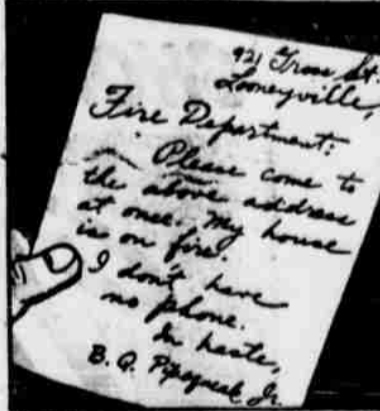 921 Tross St.
Looneyville,
Fire Department:
Please come to
the above address
at once. My house
is on fire.
I don't have
no phone.
In haste,
B. Q. Pipsqueak Jr.